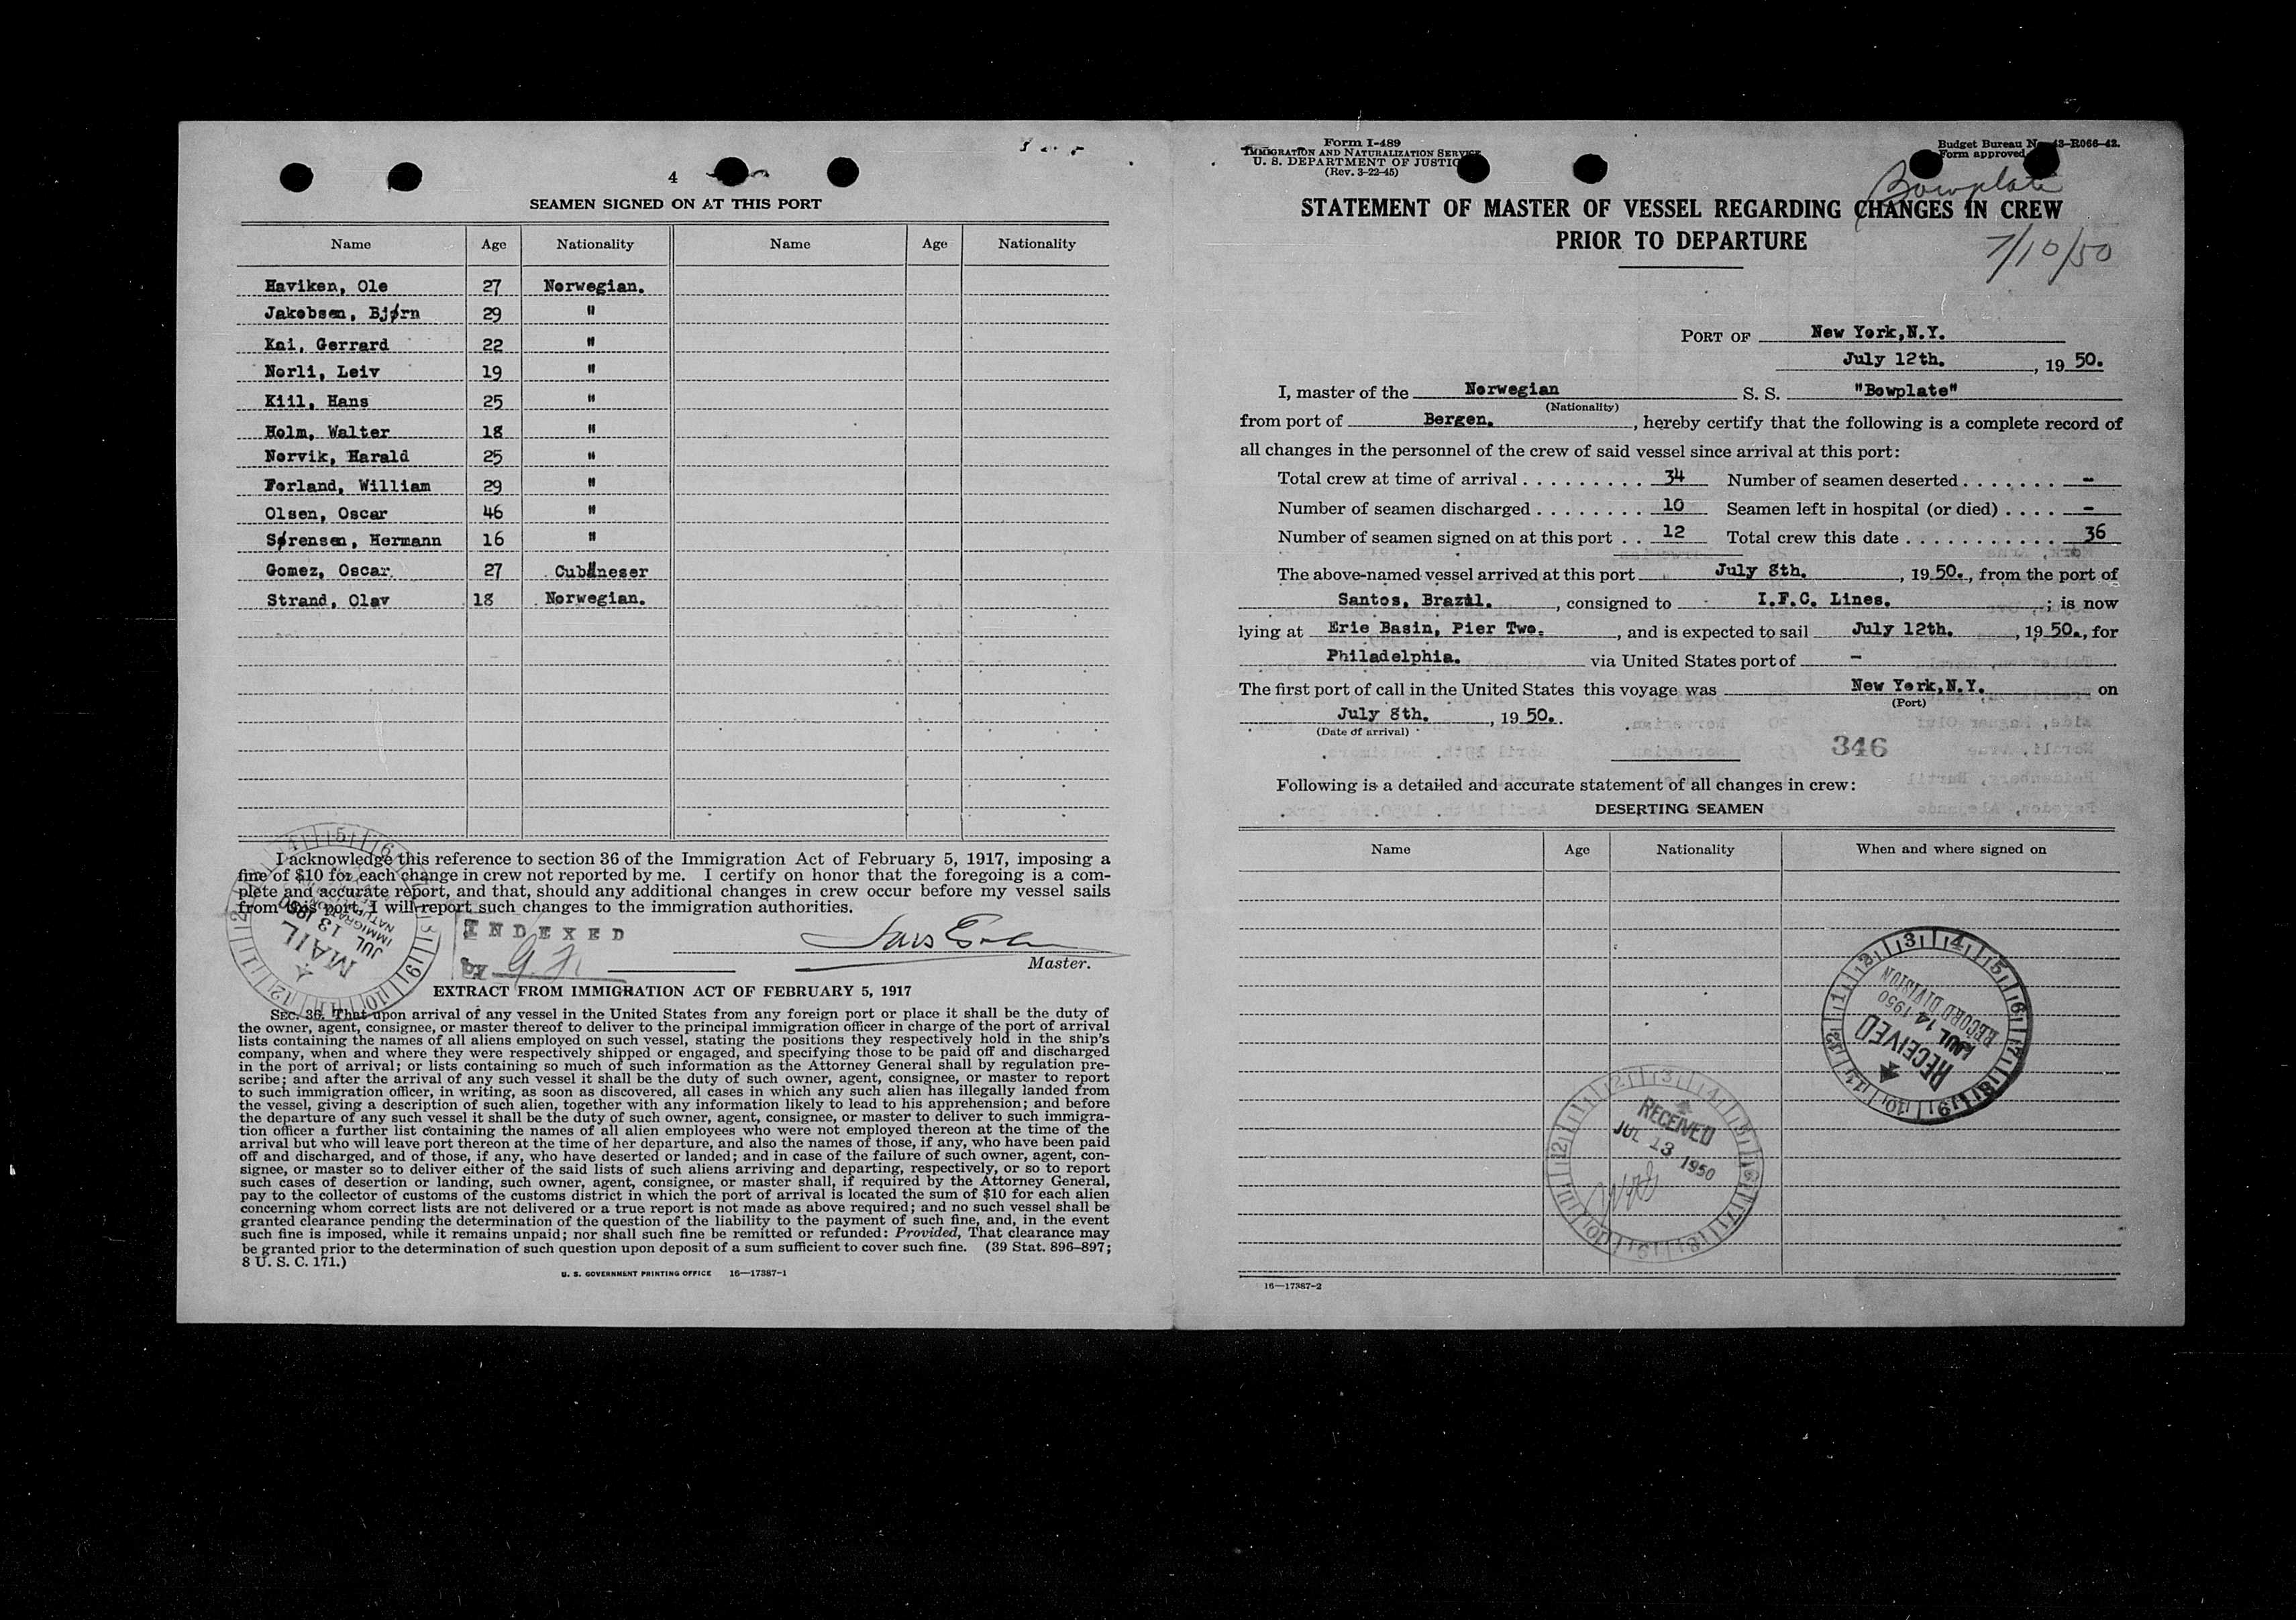 4
SEAMEN SIGNED ON AT THIS PORT
Name Age Nationality Name Age Nationality
Haviken, Ole 27 Norwegian.
Jakobsen, Bjørn 29 "
Kai, Gerrard 22 "
Norli, Leiv 19 "
Kiil, Hans 25 "
Holm, Walter 18 "
Norvik, Harald 25 "
Forland, William 29 "
Olsen, Oscar 46 "
Sørensen, Hermann 16 "
Gomez, Oscar. 27 Cubaneser
Strand, Olav 18 Norwegian.
I acknowledge this reference to section 36 of the Immigration Act of February 5, 1917, imposing a
fine of $10 for each change in crew not reported by me. I certify on honor that the foregoing is a com-
plete and accurate report, and that, should any additional changes in crew occur before my vessel sails
from this port, I will report such changes to the immigration authorities.
MAIL
JUL 13 1950
INDEXED
by
Master.
EXTRACT FROM IMMIGRATION ACT OF FEBRUARY 5, 1917
SEC. 36. That upon arrival of any vessel in the United States from any foreign port or place it shall be the duty of
the owner, agent, consignee, or master thereof to deliver to the principal immigration officer in charge of the port of arrival
lists containing the names of all aliens employed on such vessel, stating the positions they respectively hold in the ship's
company, when and where they were respectively shipped or engaged, and specifying those to be paid off and discharged
in the port of arrival; or lists containing so much of such information as the Attorney General shall by regulation pre-
scribe; and after the arrival of any such vessel it shall be the duty of such owner, agent, consignee, or master to report
to such immigration officer, in writing, as soon as discovered, all cases in which any such alien has illegally landed from
the vessel, giving a description of such alien, together with any information likely to lead to his apprehension; and before
the departure of any such vessel it shall be the duty of such owner, agent, consignee, or master to deliver to such immigra-
tion officer a further list containing the names of all alien employees who were not employed thereon at the time of the
arrival but who will leave port thereon at the time of her departure, and also the names of those, if any, who have been paid
off and discharged, and of those, if any, who have deserted or landed; and in case of the failure of such owner, agent, con-
signee, or master so to deliver either of the said lists of such aliens arriving and departing, respectively, or so to report
such cases of desertion or landing, such owner, agent, consignee, or master shall, if required by the Attorney General,
pay to the collector of customs of the customs district in which the port of arrival is located the sum of $10 for each alien
concerning whom correct lists are not delivered or a true report is not made as above required; and no such vessel shall be
granted clearance pending the determination of the question of the liability to the payment of such fine, and, in the event
such fine is imposed, while it remains unpaid; nor shall such fine be remitted or refunded: Provided, That clearance may
be granted prior to the determination of such question upon deposit of a sum sufficient to cover such fine. (39 Stat. 896–897;
8 U. S. C. 171.)
U. S. GOVERNMENT PRINTING OFFICE 16—17387-1
Form I-489
IMMIGRATION AND NATURALIZATION SERVICE
U. S. DEPARTMENT OF JUSTICE
(Rev. 3-22-45)
Budget Bureau No. 43-R066-42.
Form approved
Bowplate
STATEMENT OF MASTER OF VESSEL REGARDING CHANGES IN CREW
PRIOR TO DEPARTURE
7/10/50
PORT OF New York,N.Y.
July 12th. , 19 50.
I, master of the Norwegian S. S. "Bowplate"
(Nationality)
from port of Bergen. , hereby certify that the following is a complete record of
all changes in the personnel of the crew of said vessel since arrival at this port:
Total crew at time of arrival . . . . . . . . . 34 Number of seamen deserted . . . . . . . -
Number of seamen discharged . . . . . . . . 10 Seamen left in hospital (or died) . . . . -
Number of seamen signed on at this port . . 12 Total crew this date . . . . . . . . . . . 36
The above-named vessel arrived at this port July 8th. , 19 50., from the port of
Santos, Brazil. , consigned to I.F.C. Lines. ; is now
lying at Erie Basin, Pier Two. , and is expected to sail July 12th. , 19 50., for
Philadelphia. via United States port of -
The first port of call in the United States this voyage was New York,N.Y. on
(Port)
July 8th. , 19 50.
(Date of arrival)
346
Following is a detailed and accurate statement of all changes in crew:
DESERTING SEAMEN
Name Age Nationality When and where signed on
RECEIVED
JUL 14 1950
RECORD DIVISION
RECEIVED
JUL 13 1950
16—17387-2